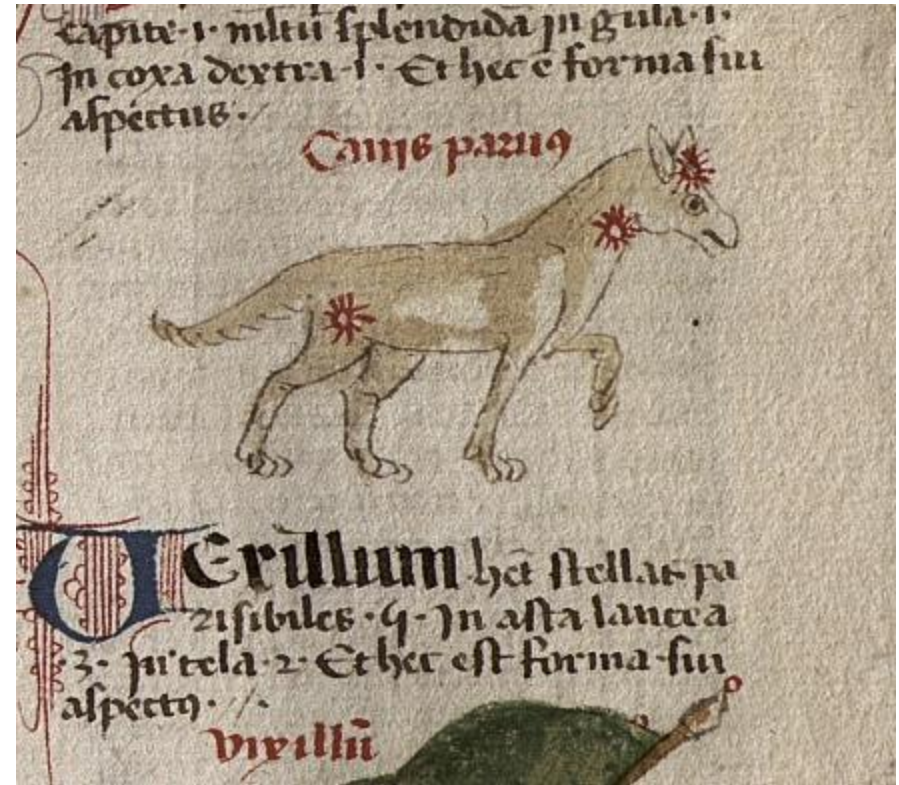 capite · 1 · mĺtū splendidā in gula · 1 ·
In coxa dextra · 1 · Et hec ē forma sui
aspectus ·
Canis paruꝯ
VExillum hēt stellas pa
risibiles · 5 · In asta lancea
· 3 · In tela · 2 · Et hec est forma sui
aspectꝯ ·
vixillū